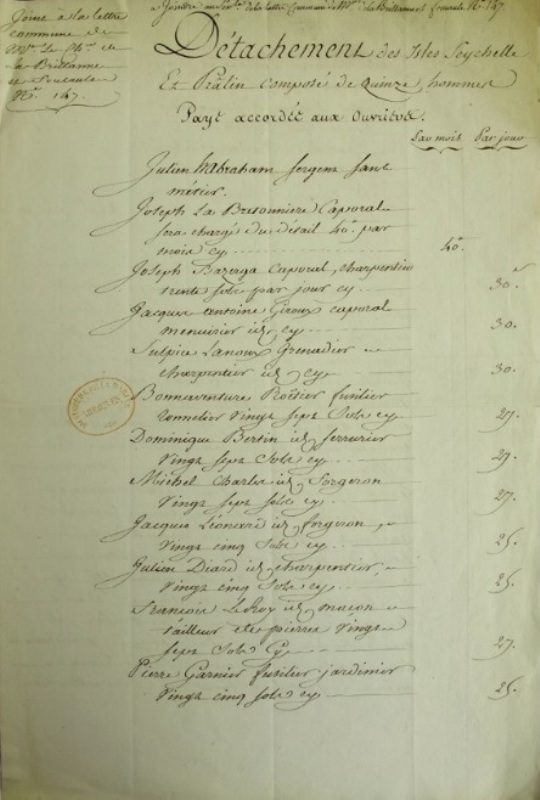 Joint à la lettre
commune de
Mrs. Le Chr. de
La Brillanne
et
No. 147.
a Joindre de la lettre Commune de Mrs. de la Brillanne No. 147.
Détachement des Isles Seychelle
Et Prâlin composé de Quinze, hommes
Paye accordée aux Ouvriers.
Par mois Par jour
Julien Abraham sergent sans
métier.
Joseph La Bresonniere Caporal
sera chargé du détail 40.tt par
mois cy 40.tt
Joseph Bazerga caporal, charpentier
trente sols par jour cy 30.s
Jacques antoine Giroux caporal
menuisier id. cy 30.
Sulpice Lanoux Grenadier
charpentier id. cy 30.
Bonnaventure Rotier fusilier
tonnelier Vingt sept Sols cy 27.
Dominique Bertin id. serrurier
Vingt sept Sols cy 29.
Michel Charles id. Forgeron
Vingt sept sols cy 27.
Jacques Léonard id. forgeron,
Vingt cinq Sols cy 25.
Julien Diard id. charpentier,
Vingt cinq Sols cy 25.
François LeRoy id. macon
tailleur de pierres Vingt
sept Sols Cy 27.
Pierre Garnier fusilier jardinier
Vingt cinq sols cy 25.